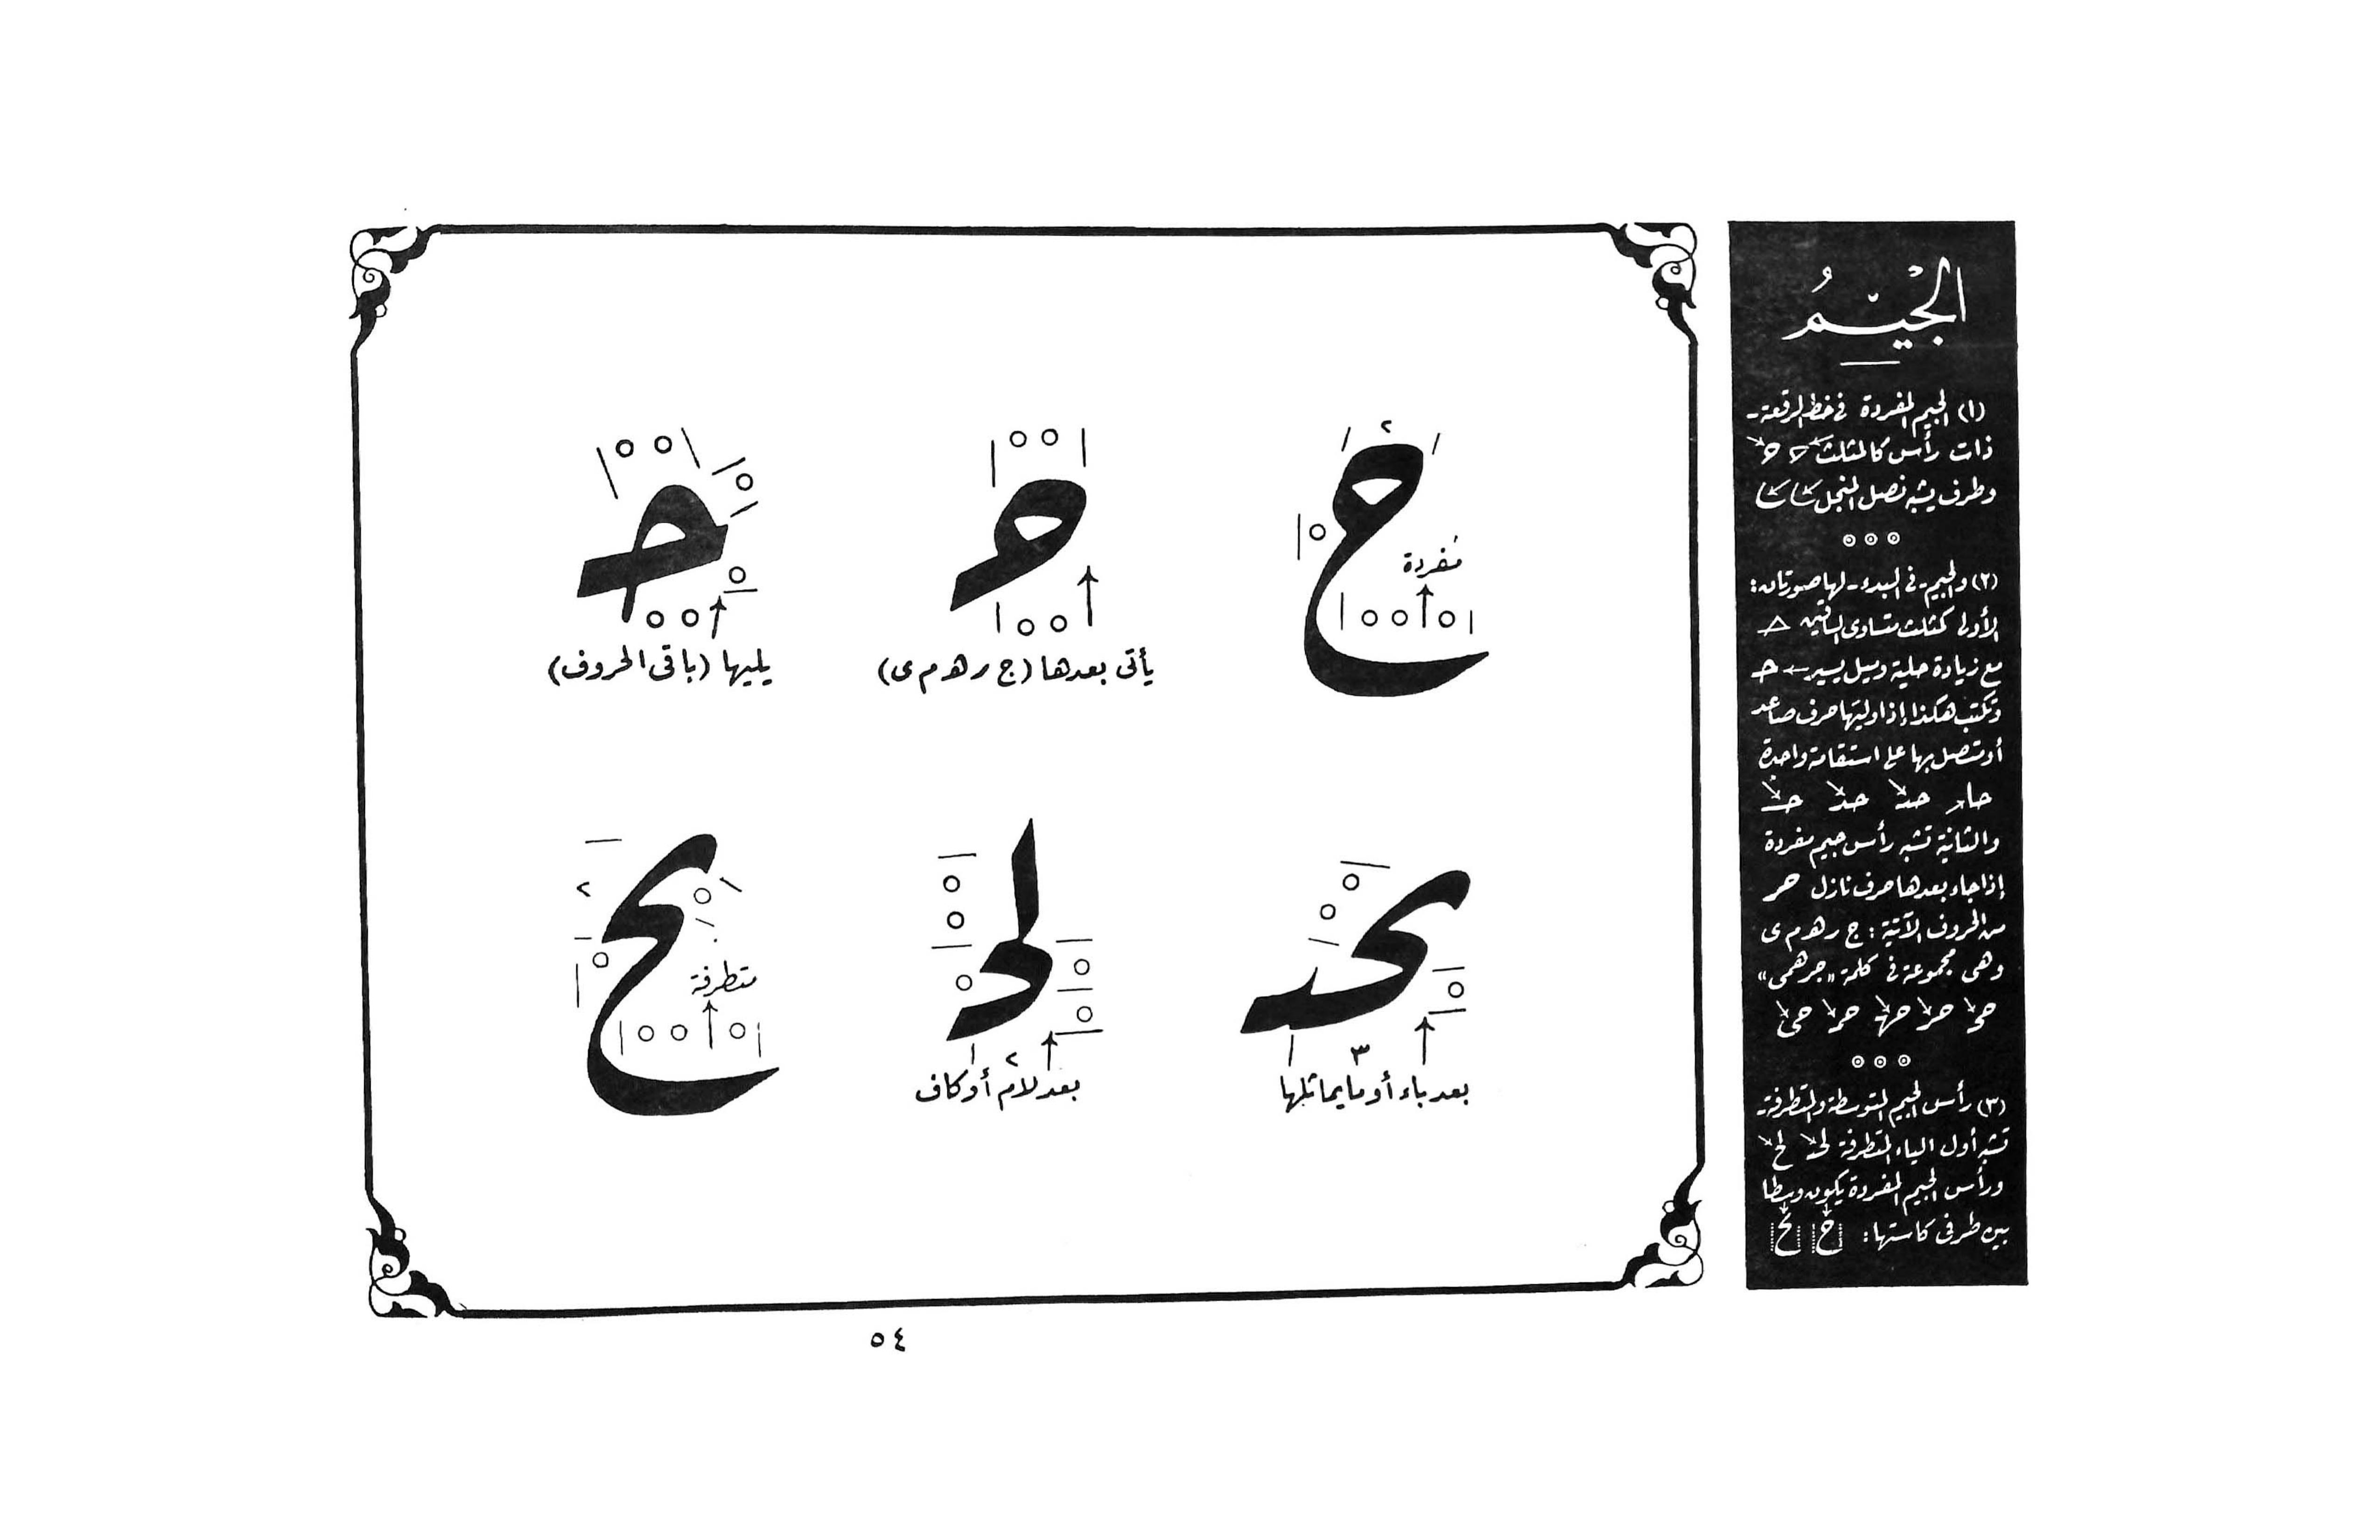 الجِيْمُ
(١) الجيم المفردة في خط الرقعة -
ذات رأس كالمثلث
وطرف يشبه نصل المنجل
(٢) والجيم - في البدء - لها صورتان:
الأولى كمثلث متساوى الساقين
مع زيادة حلية وميل يسير
وتكتب هكذا إذا وليتها حرف صاعد
أو متصل بها على استقامة واحدة
والثانية تشبه رأس جيم مفردة
إذا جاء بعدها حرف نازل
من الحروف الآتية: ج ر هـ م ى
وهى مجموعة في كلمة "جرهمى"
(٣) رأس الجيم المتوسطة والمتطرفة -
تشبه أول الياء المتطرفة
ورأس الجيم المفردة يكون وسطا
بين طرفى كاستها:
ح
٢
مفردة
يأتى بعدها (ج ر هـ م ى)
يليها (باقى الحروف)
٣
بعد باء أو ما يماثلها
٢
بعد لام أو كاف
٢
متطرفة
٥٤